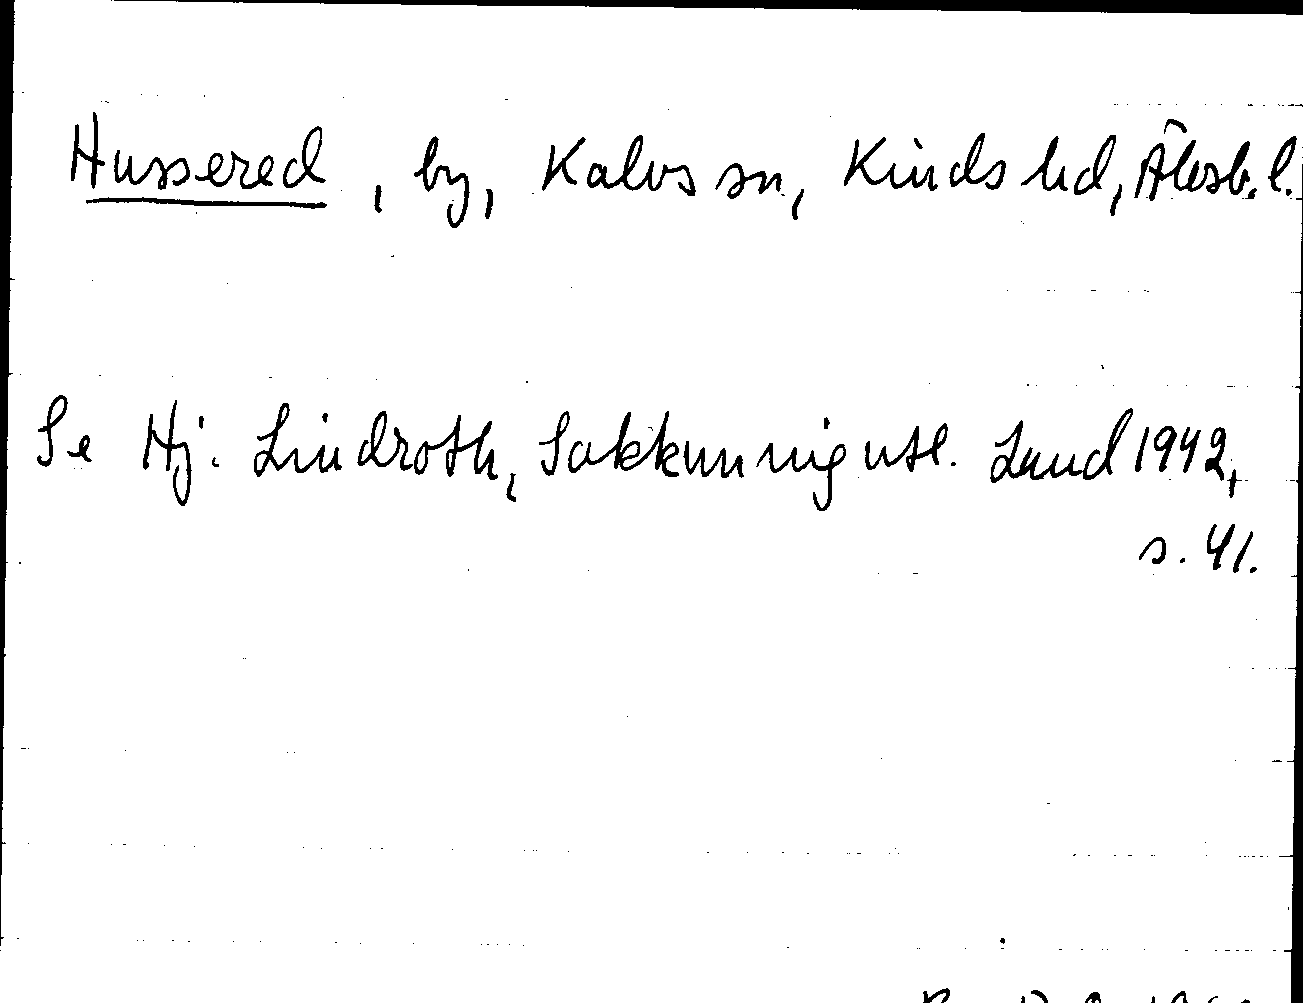 Hussered, by, Kalvs sn, Kinds hd, Älvsb. l.
Se Hj. Lindroth, Sakkunnigutl. Lund 1942,
s. 41.